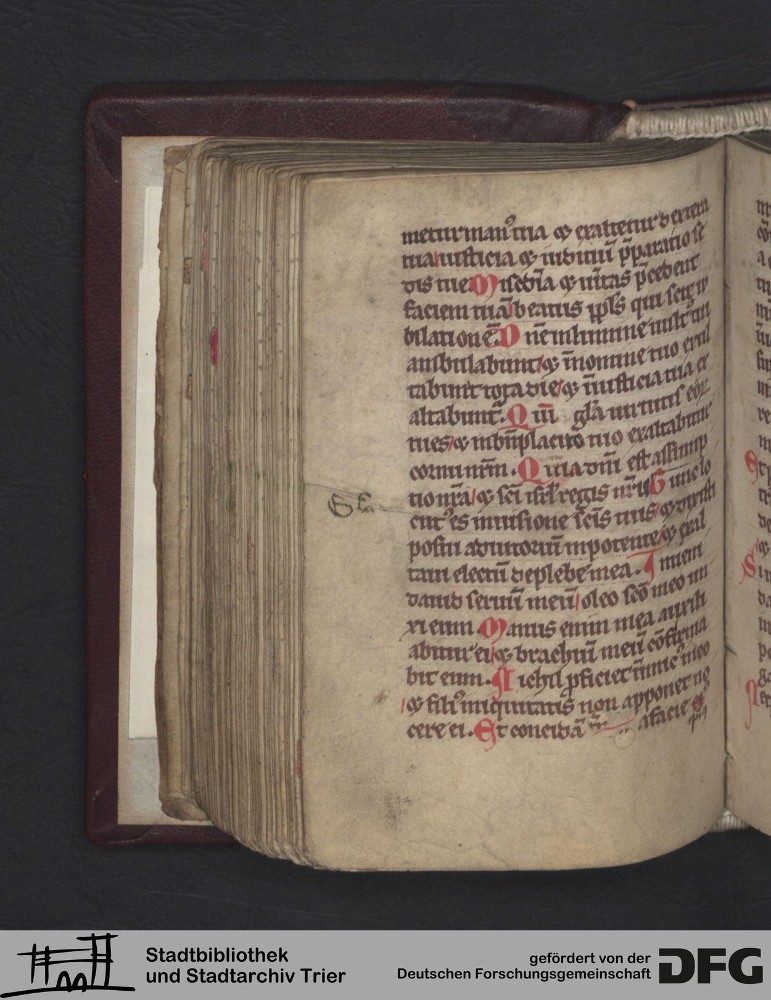 metur man᷒ tua ⁊ exaltetur dextera
tua iusticia ⁊ iudiciū p̄paratio se
dis tue Misc̄dia ⁊ ūitas p̄cedent
faciem tuā beatus ppl̄s qui scit iu
bilationē. Dn̄e in lumine uult᷒ tui
ambulabunt ⁊ ī nomine tuo exul
tabunt tota die ⁊ ī iusticia tua ex
altabunt᷒. Qm̄ gl̄a uirtutis eoꝝ
tu es ⁊ in bn̄placito tuo exaltabitur
cornu nr̄m. Quia dn̄i est assump
tio nr̄a ⁊ sc̄i isrl̄ regis nr̄i Tunc lo
cut᷒ es in uisione sc̄is tuis ⁊ dixisti
posui adiutoriū in potente ⁊ exal
taui electū de plebe mea. Inueni
dauid seruū meū oleo sc̄o meo un
xi eum. Manus enim mea auxili
abitur ei ⁊ brachiū meū cōfirma
bit eum. Nichil p̄ficiet inimic᷒ ī eo
⁊ fili᷒ iniquitatis non apponet no
cere ei. Et concidā a facie
ip̄i᷒
Stadtbibliothek
und Stadtarchiv Trier
gefördert von der
Deutschen Forschungsgemeinschaft
DFG